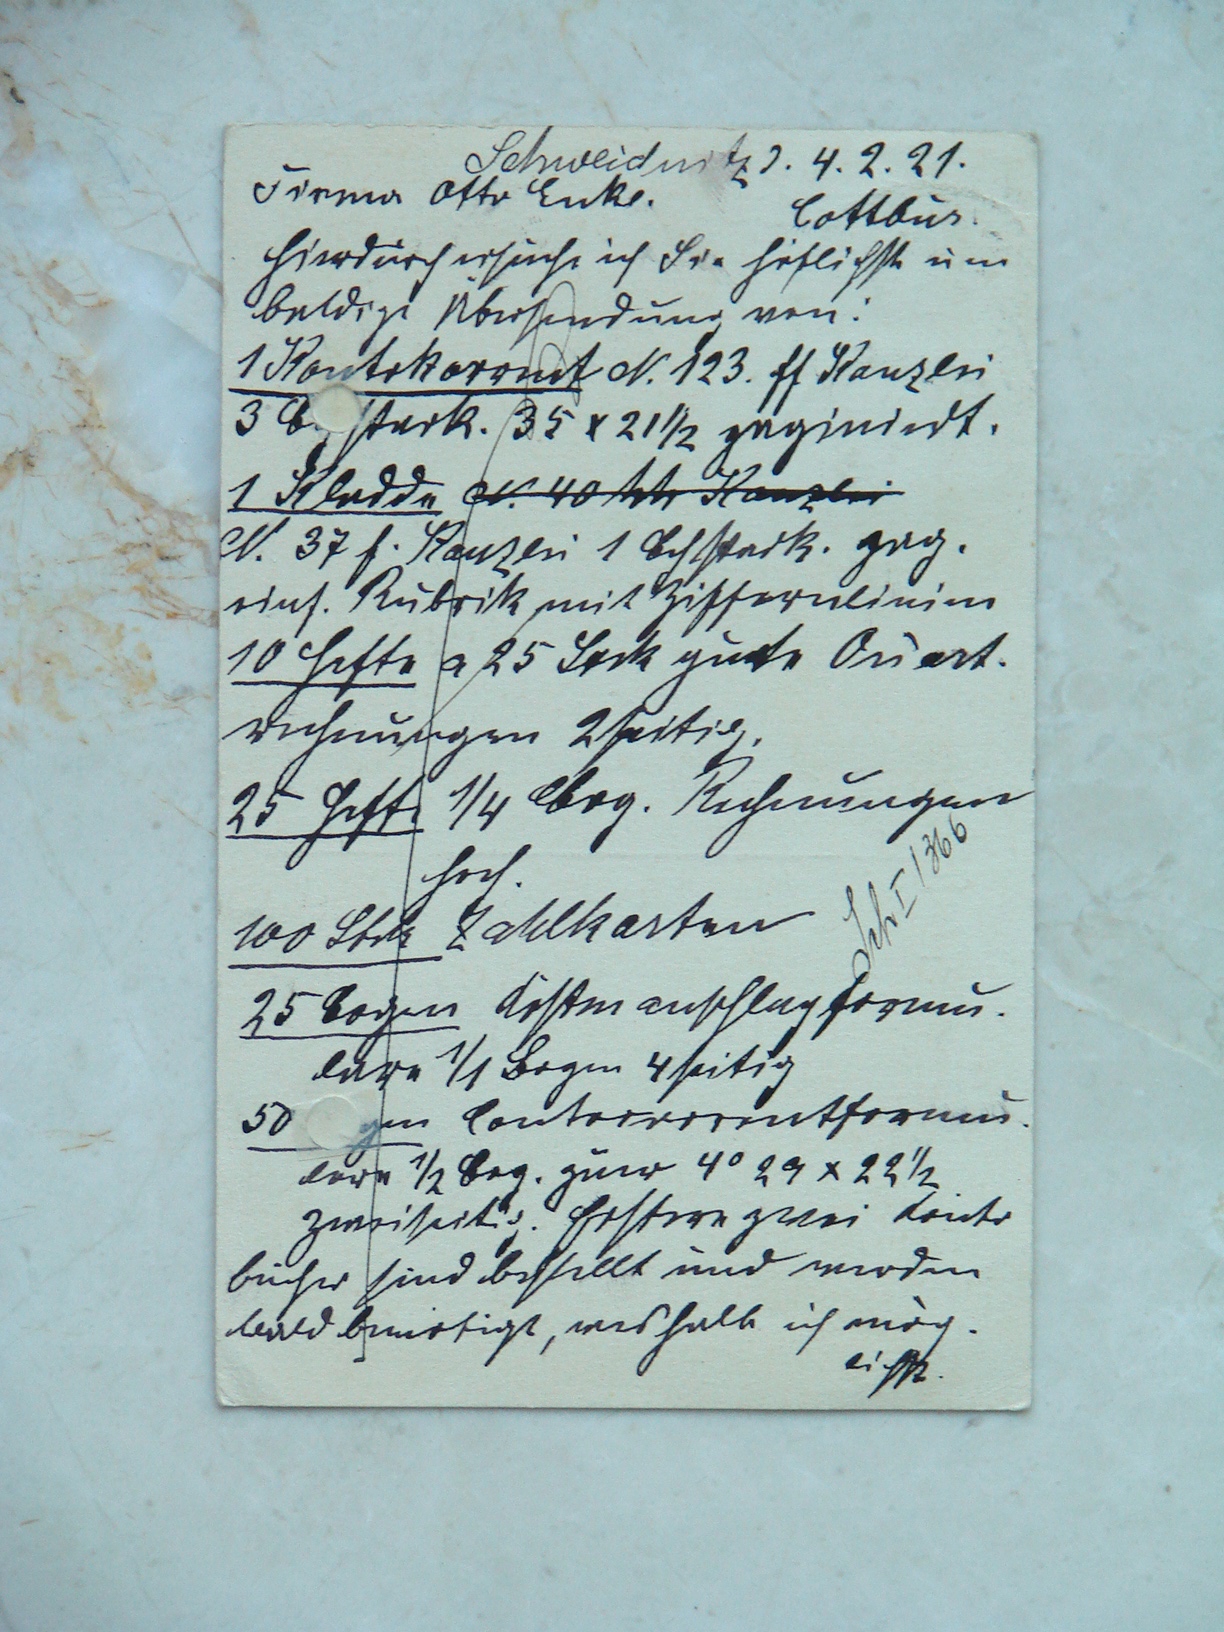 Schweidnitz d. 4.2.21.
Firma Otto Enke.
Cottbus.
Hierdurch ersuche ich Sie höflichst um
baldige Übersendung von:
1 Kontokorrent N. 123. ff Kanzlei
3 B stark. 35 x 21 1/2 paginiert.
1 Kladde N. 40 Kanzlei
N. 37 f. Kanzlei 1 Bch stark. pag.
einf. Rubrik mit Ziffernlinien
10 Hefte a 25 Stck gute Quart.
rechnungen 2seitig.
25 Hefte 1/4 Bog. Rechnungen
hoch.
100 Stck Zahlkarten
Sch I/366
25 Bogen Kostenanschlagformu.
lare 1/1 Bogen 4seitig
50 gen Contocorrentformu.
lare 1/2 Bog. quer 4° 29 x 22 1/2
zweiseitig. Erstere zwei Konto
bücher sind bestellt und werden
bald benötigt, weshalb ich mög.
lichst.